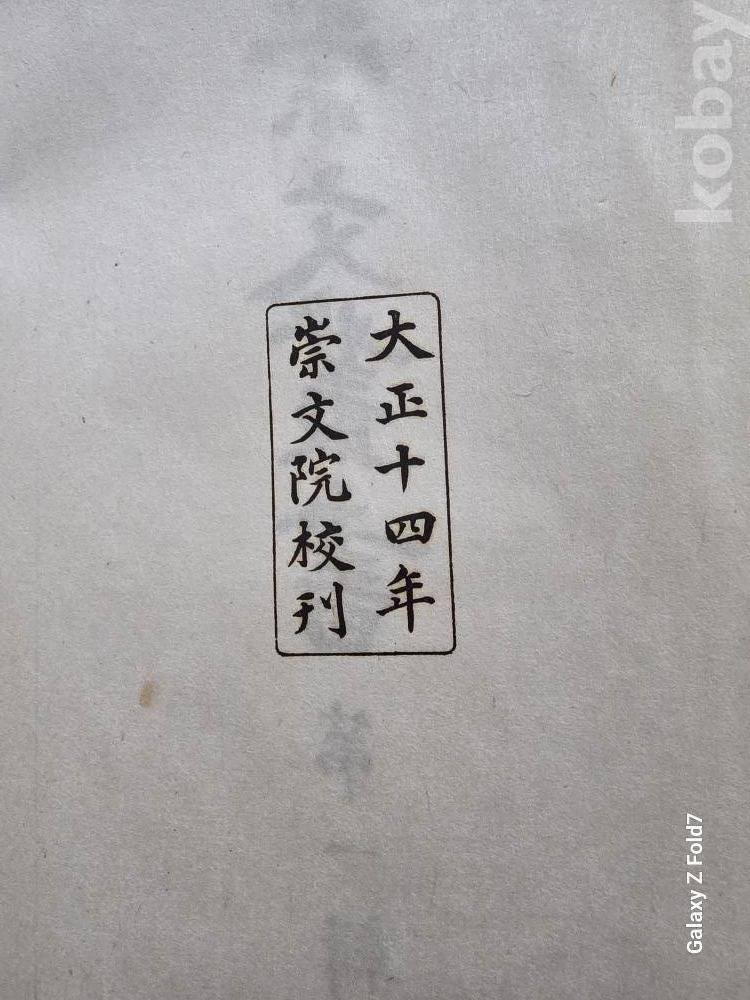 大正十四年
崇文院校刊
kobay
Galaxy Z Fold7